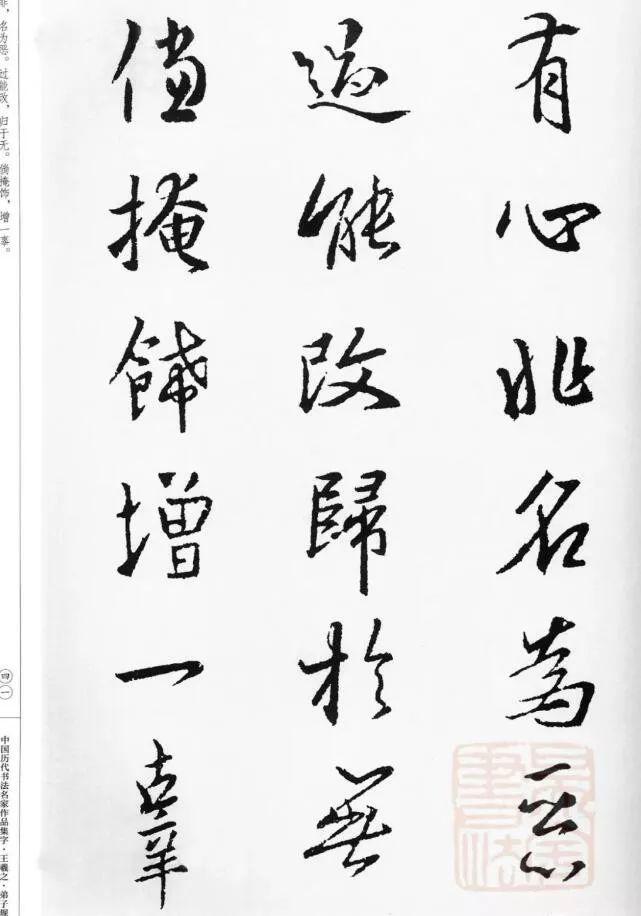 有心非名為惡
過能改歸於無
倘掩飾增一辜
非，名为恶。过能改，归于无。倘掩饰，增一辜。
四一
中国历代书法名家作品集字·王羲之·弟子规